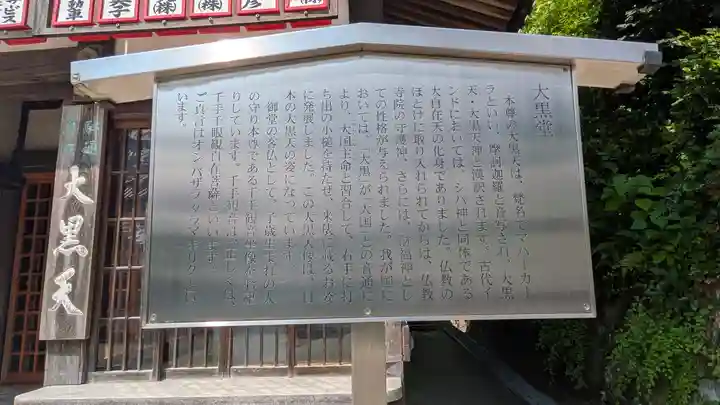 大黒堂
本尊の大黒天は、梵名でマハーカー
ラといい、摩訶迦羅と音写され、大黒
天・大黒天神と漢訳されます。古代イ
ンドにおいては、シバ神と同体である
大自在天の化身でありました。仏教の
ほとけに取り入れられてからは、仏教
寺院の守護神、さらには、福神とし
ての性格が与えられました。我が国に
おいては、「大黒」が「大国」との音通に
より、大国主命と習合して、右手に打
ち出の小槌を持たせ、米俵に威るお姿
に発展しました。この大黒天像は、日
本の大黒天の姿になっています。
御堂の客仏として、子歳生まれの人
の守り本尊である千手観音坐像をお祀
りしています。千手観音は、正しくは、
千手千眼観自在菩薩といいます。
ご真言はオンバザラタラマキリクと
います。
大黒天